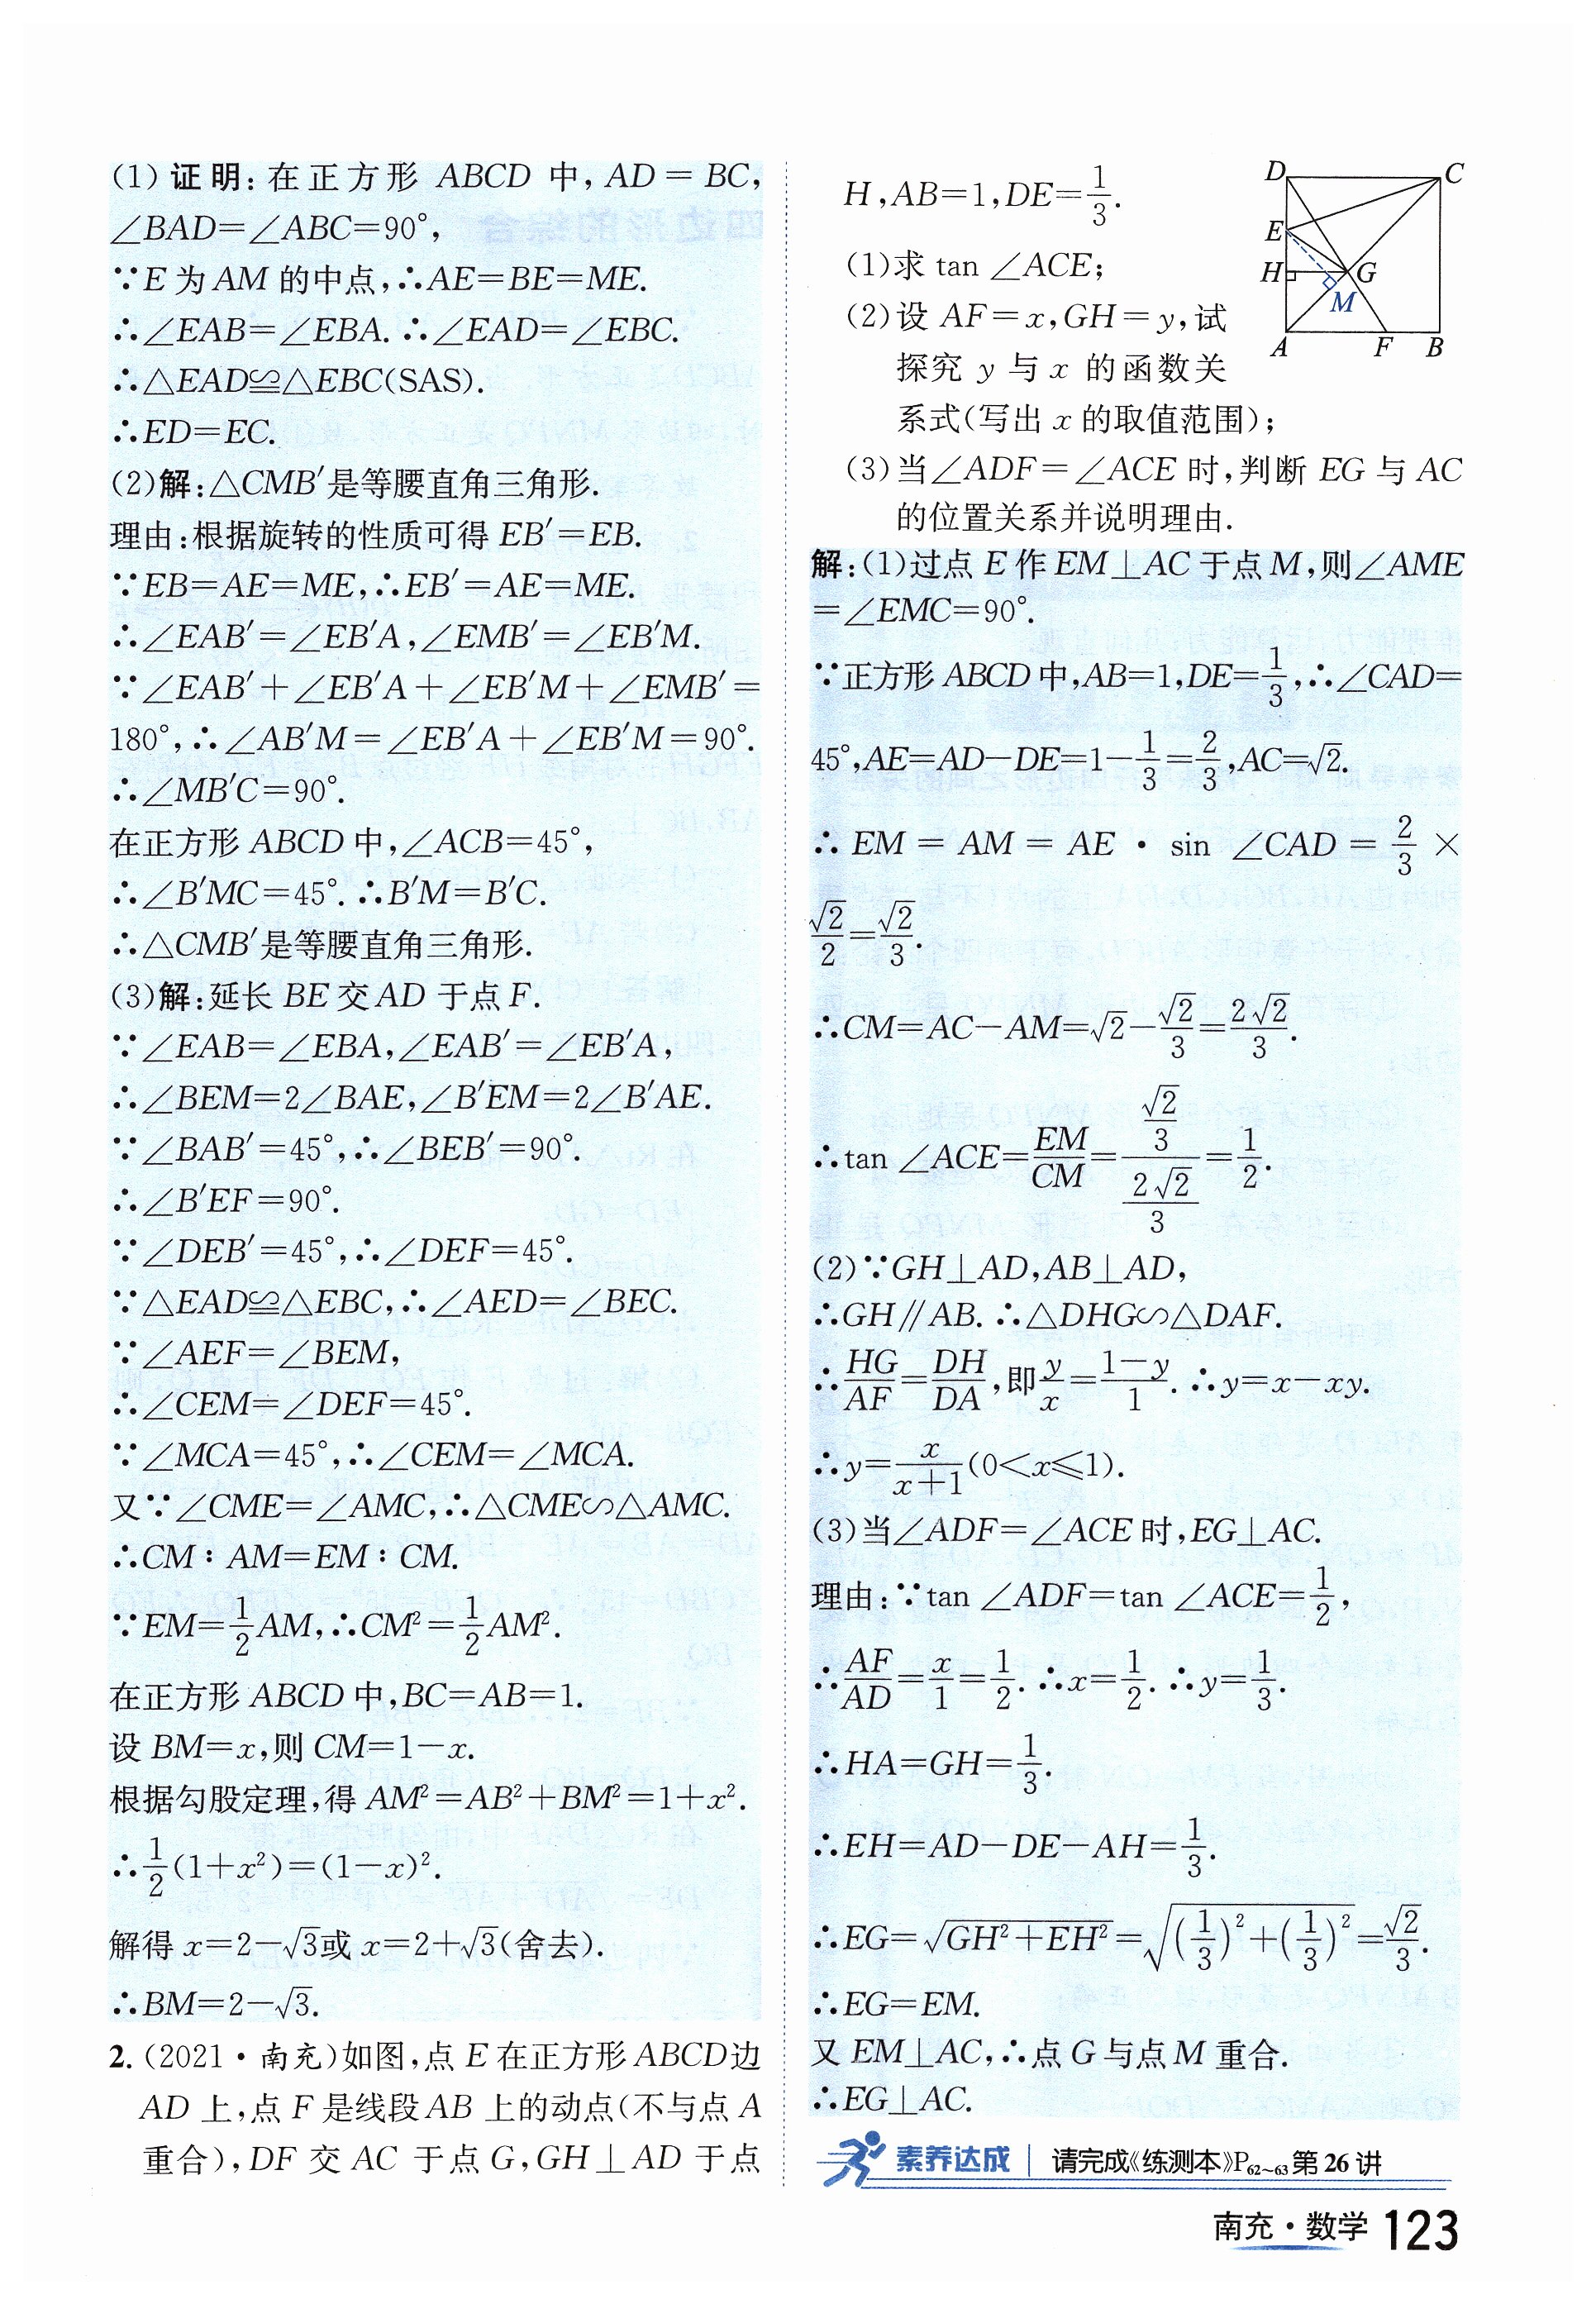 (1)证明:在正方形 ABCD 中, AD=BC,
∠BAD=∠ABC=90°,
∵E 为 AM 的中点,∴AE=BE=ME.
∴∠EAB=∠EBA. ∴∠EAD=∠EBC.
∴△EAD≌△EBC(SAS).
∴ED=EC.
(2)解:△CMB′是等腰直角三角形.
理由:根据旋转的性质可得 EB′=EB.
∵EB=AE=ME,∴EB′=AE=ME.
∴∠EAB′=∠EB′A,∠EMB′=∠EB′M.
∵∠EAB′+∠EB′A+∠EB′M+∠EMB′=
180°,∴∠AB′M=∠EB′A+∠EB′M=90°.
∴∠MB′C=90°.
在正方形 ABCD 中,∠ACB=45°,
∴∠B′MC=45°. ∴B′M=B′C.
∴△CMB′是等腰直角三角形.
(3)解:延长 BE 交 AD 于点 F.
∵∠EAB=∠EBA,∠EAB′=∠EB′A,
∴∠BEM=2∠BAE,∠B′EM=2∠B′AE.
∵∠BAB′=45°,∴∠BEB′=90°.
∴∠B′EF=90°.
∵∠DEB′=45°,∴∠DEF=45°.
∵△EAD≌△EBC,∴∠AED=∠BEC.
∵∠AEF=∠BEM,
∴∠CEM=∠DEF=45°.
∵∠MCA=45°,∴∠CEM=∠MCA.
又∵∠CME=∠AMC,∴△CME∽△AMC.
∴CM∶AM=EM∶CM.
∵EM=1/2AM,∴CM²=1/2AM².
在正方形 ABCD 中,BC=AB=1.
设 BM=x,则 CM=1-x.
根据勾股定理,得 AM²=AB²+BM²=1+x².
∴1/2(1+x²)=(1-x)².
解得 x=2-√3或 x=2+√3(舍去).
∴BM=2-√3.
2. (2021·南充)如图,点 E 在正方形 ABCD边
AD 上,点 F 是线段 AB 上的动点(不与点 A
重合),DF 交 AC 于点 G,GH⊥AD 于点
H,AB=1,DE=1/3.
(1)求 tan ∠ACE;
(2)设 AF=x,GH=y,试
探究 y 与 x 的函数关
系式(写出 x 的取值范围);
(3)当∠ADF=∠ACE 时,判断 EG 与 AC
的位置关系并说明理由.
D C
E
H G
M
A F B
解:(1)过点 E 作 EM⊥AC 于点 M,则∠AME
=∠EMC=90°.
∵正方形 ABCD 中,AB=1,DE=1/3,∴∠CAD=
45°,AE=AD-DE=1-1/3=2/3,AC=√2.
∴EM=AM=AE·sin ∠CAD=2/3×
√2/2=√2/3.
∴CM=AC-AM=√2-√2/3=2√2/3.
∴tan ∠ACE=EM/CM=(√2/3)/(2√2/3)=1/2.
(2)∵GH⊥AD,AB⊥AD,
∴GH∥AB. ∴△DHG∽△DAF.
∴HG/AF=DH/DA,即y/x=(1-y)/1. ∴y=x-xy.
∴y=x/(x+1)(0<x≤1).
(3)当∠ADF=∠ACE 时,EG⊥AC.
理由:∵tan ∠ADF=tan ∠ACE=1/2,
∴AF/AD=x/1=1/2. ∴x=1/2. ∴y=1/3.
∴HA=GH=1/3.
∴EH=AD-DE-AH=1/3.
∴EG=√(GH²+EH²)=√((1/3)²+(1/3)²)=√2/3.
∴EG=EM.
又 EM⊥AC,∴点 G 与点 M 重合.
∴EG⊥AC.
素养达成 | 请完成《练测本》P62~63第 26 讲
南充·数学 123